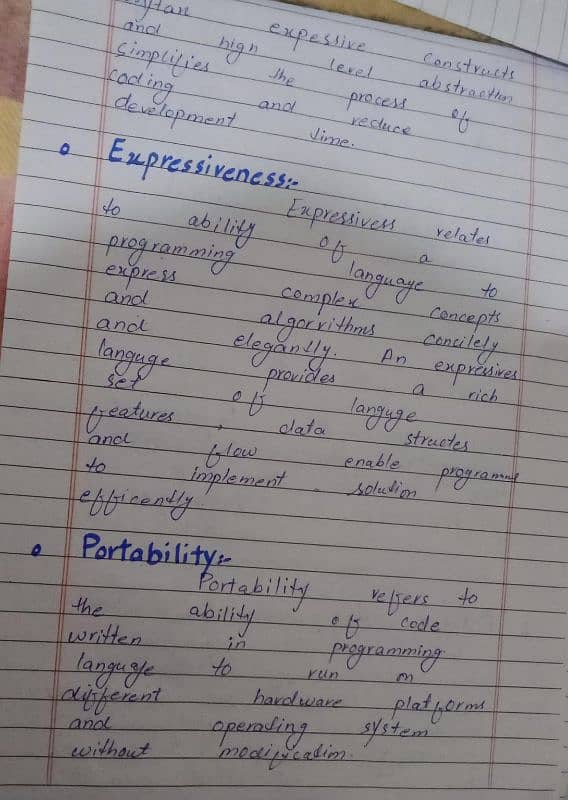 and expessive constructs
cimplifies high level abstraction
coding the process of
development and reduce
time.
Expressiveness:-
Expressivess relates
to ability of a
programming language to
express complex concepts
and algorrithms concilely
and elegantly. An expressives
languge provides a rich
set of languge
features, data structes
and flow enable programme
to implement solution
efficently.
Portability:-
Portability reffers to
the ability of code
written in programming
language to run on
different hardware platforms
and operating system
without modification.